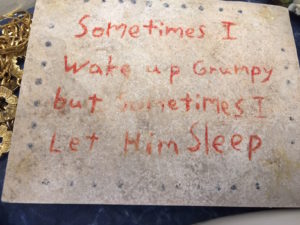 Sometimes I
Wake up Grumpy
but Sometimes I
Let Him Sleep